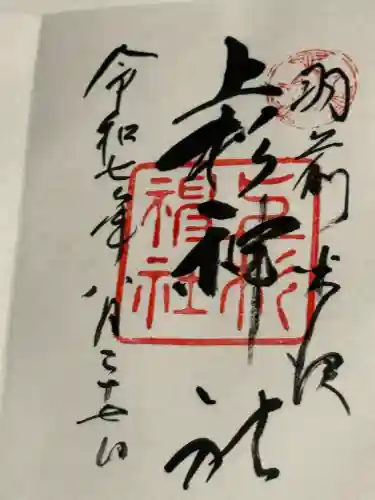 羽前米沢
上杉神社
令和七年八月二十七日
上杉神社